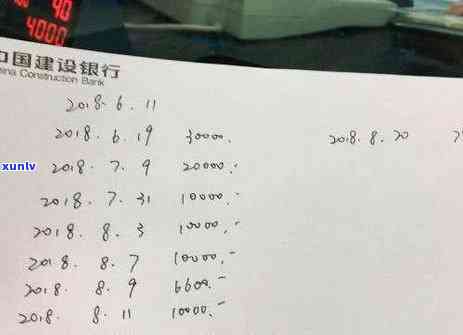 40
4000
中国建设银行
China Construction Bank
2018.6.11
2018.6.19 30000.- 2018.8.20
2018.7.9 20000.-
xunlv
2018.7.31 10000.-
2018.8.3 10000.-
2018.8.7 10000.-
2018.8.9 6600.-
2018.8.11 10000.-